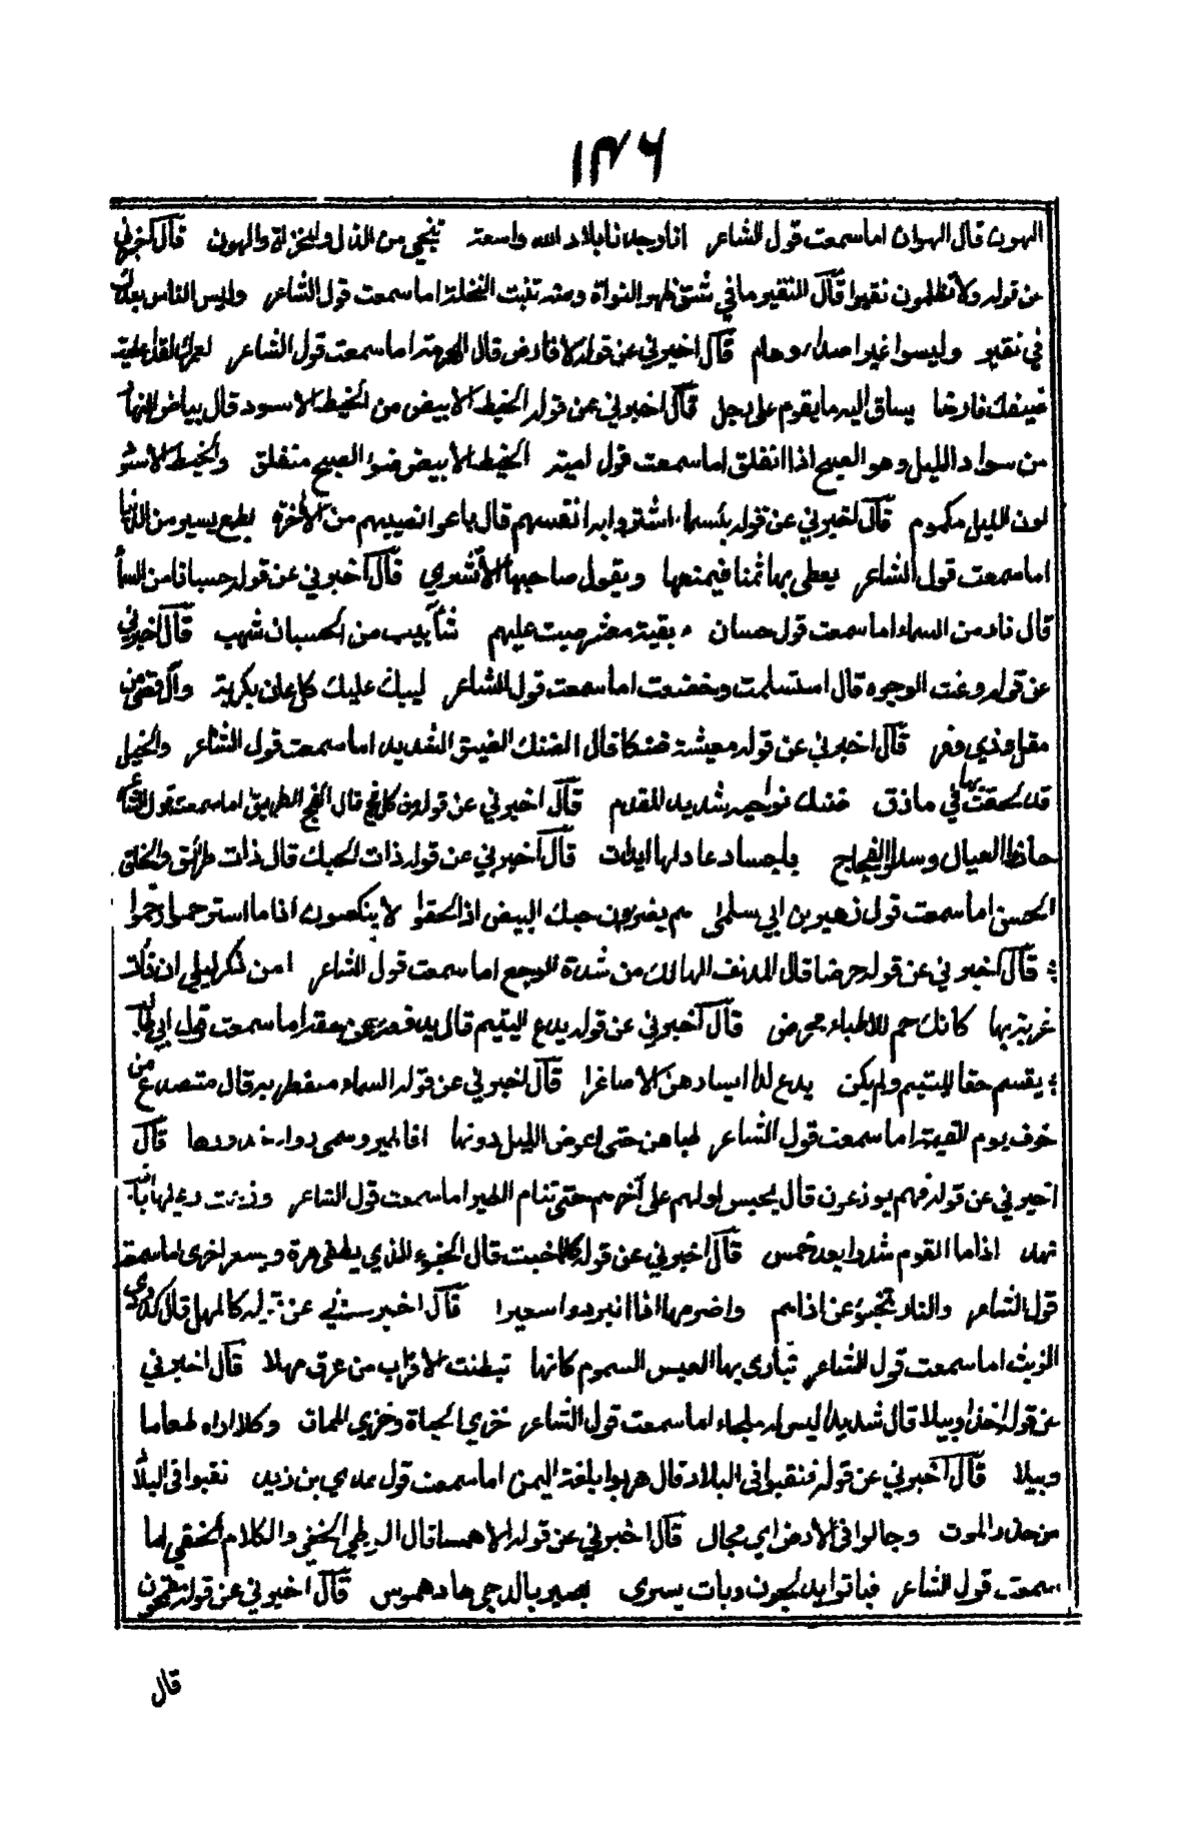 ١٣٦
الهون قال الهوان اما سمعت قول الشاعر انا وجدنا بلاد الله واسعة تنجي من الذل والمخزاة والهون قال اخبرني
عن قوله ولا تظلمون نقيرا قال النقير ما في شق ظهر النواة ومنه تنبت النخلة اما سمعت قول الشاعر وليس الناس بعدك
في نقير وليسوا غير اصداء وهام قال اخبرني عن قوله لا فارض قال الهرمة اما سمعت قول الشاعر لعمري لقد اعطيت
ضيفك فارضا يساق اليه ما يقوم على رجل قال اخبرني عن قوله الخيط الابيض من الخيط الاسود قال بياض النهار
من سواد الليل وهو الصبح اذا انفلق اما سمعت قول امية الخيط الابيض ضوء الصبح منفلق والخيط الاسود
لون الليل مكموم قال اخبرني عن قوله بئسما اشتروا به انفسهم قال باعوا نصيبهم من الآخرة بطمع يسير من الدنيا
اما سمعت قول الشاعر يعطى بها ثمنا فيمنعها ويقول صاحبها الا تشري قال اخبرني عن قوله حسبانا من السما
قال نار من السماء اما سمعت قول حسان بقية معشر صبت عليهم شآبيب من الحسبان شهب قال اخبرني
عن قوله وعنت الوجوه قال استسلمت وخضعت اما سمعت قول الشاعر ليبك عليك كل عان بكربة وآل قصي من
مقل وذي وفر قال اخبرني عن قوله معيشة ضنكا قال الضنك الضيق الشديد اما سمعت قول الشاعر والخيل
قد لحقت بها في مازق ضنك نواحيه شديد المقدم قال اخبرني عن قوله من كل فج قال الفج الطريق اما سمعت قول الشاعر
حاذوا العيال وسدوا الفجاج باجساد عاد لها ايدات قال اخبرني عن قوله ذات الحبك قال ذات طرائق والخلق
الحسن اما سمعت قول زهير بن ابي سلمى هم يضربون حبك البيض اذ لحقوا لا ينكصون اذا ما استرحموا رحموا
قال اخبرني عن قوله حرضا قال المدنف الهالك من شدة الوجع اما سمعت قول الشاعر امن ذكر ليلى ان نأت
غربة بها كانك حم للاطباء محرض قال اخبرني عن قوله يدع اليتيم قال يدفعه عن حقه اما سمعت قول ابي طالب
يقسم حقا لليتيم ولم يكن يدع لذا ايسارهن الاصاغرا قال اخبرني عن قوله السماء منفطر به قال منصدع من
خوف يوم القيمة اما سمعت قول الشاعر طباهن حتى اعوض الليل دونها قال
اخبرني عن قوله فهم يوزعون قال يحبس اولهم على آخرهم حتى تنام الطير اما سمعت قول الشاعر
نهد اذا ما القوم شدوا بعد خمس قال اخبرني عن قوله كلما خبت قال الخبوء الذي يطفى مرة ويسعر اخرى اما سمعت
قول الشاعر والنار تخبو عن اذاهم واضرمها اذا ابتردوا سعيرا قال اخبرني عن قوله كالمهل قال كدردي
الزيت اما سمعت قول الشاعر تبارى بها العيس السموم كانها تبطنت الاقراب من عرق مهلا قال اخبرني
عن قوله اخذا وبيلا قال شديدا ليس له ملجاء اما سمعت قول الشاعر خزي الحياة وخزي الممات وكلا اراه طعاما
وبيلا قال اخبرني عن قوله فنقبوا في البلاد قال هربوا بلغة اليمن اما سمعت قول عدي بن زيد نقبوا في البلاد
من حذر الموت وجالوا في الارض اي مجال قال اخبرني عن قوله الا همسا قال الوطي الخفي والكلام الخفي اما
سمعت قول الشاعر فباتوا يدلجون وبات يسرى بصير بالدجى هاد هموس قال اخبرني عن قوله مقمحون
قال